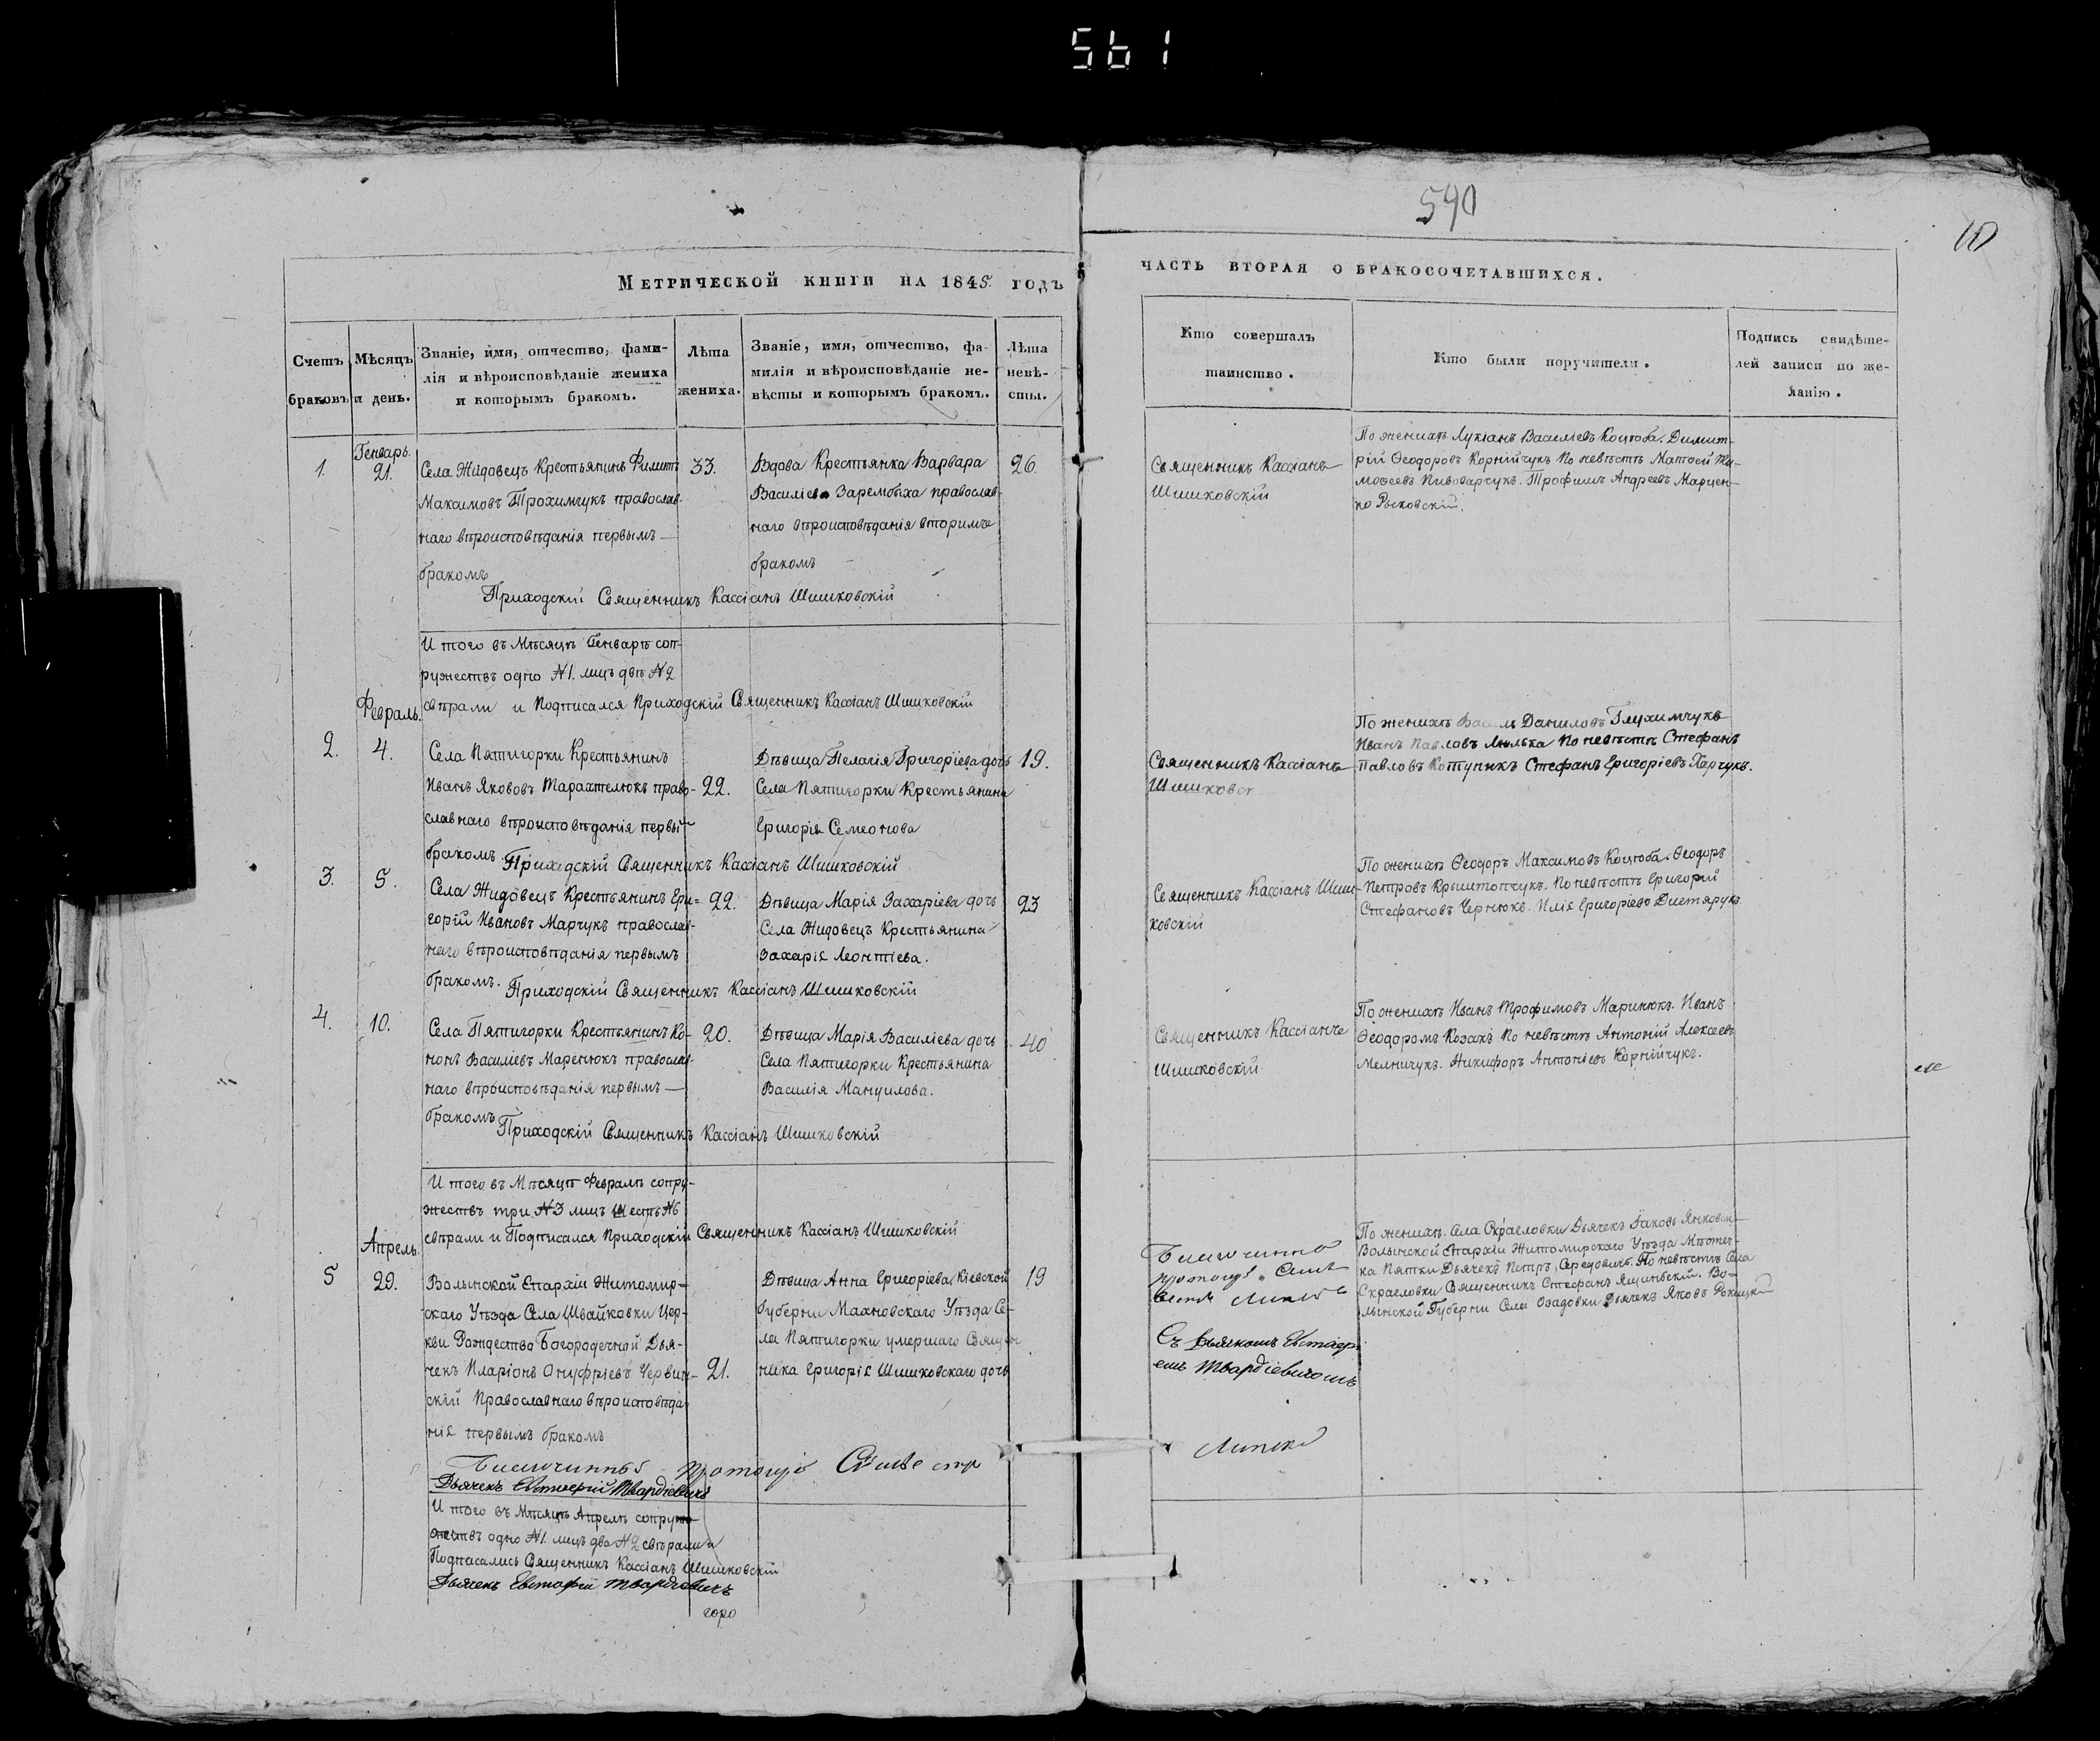 561
590
10
Метрической книги на 1845 годъ
часть вторая о бракосочетавшихся.
Счетъ браковъ
Мѣсяцъ и день.
Званіе, имя, отчество, фами-
лія и вѣроисповѣданіе жениха
и которымъ бракомъ.
Лѣта
жениха.
Званіе, имя, отчество, фа-
милія и вѣроисповѣданіе не-
вѣсты и которымъ бракомъ.
Лѣта
невѣ-
сты.
Кто совершалъ
таинство.
Кто были поручители.
Подпись свидѣте-
лей записи по же-
ланію.
1.
Генварь.
21.
Села Жидовецъ Крестьянинъ Филипъ
Максимовъ Трохимчукъ православ-
наго вѣроисповѣданія первымъ
бракомъ
33.
Вдова Крестьянка Варвара
Василіева Зарембиха православ-
наго вѣроисповѣданія вторимъ
бракомъ
26.
Приходскій Священникъ Кассіанъ Шишковскій
Священникъ Кассіанъ
Шишковскій
По женихѣ Лукіанъ Василіевъ Коцюба. Димит-
рій Ѳеодоровъ Корнійчукъ По невѣстѣ Матѳей Ти-
моѳеевъ Пивоварчукъ. Трофимъ Андреевъ Марцен-
ко Рыковскій.
И того въ Мѣсяцѣ Генварѣ соп-
ружествъ одно №1. лицъ двѣ №2
свѣрали и Подписался Приходскій Священникъ Кассіанъ Шишковскій
Февраль.
2.
4.
Села Пятигорки Крестьянинъ
Иванъ Якововъ Тарахтелюкъ право-
славнаго вѣроисповѣданія первый
бракомъ.
22.
Дѣвица Пелагія Григоріева дочь
Села Пятигорки Крестьянина
Григорія Семеонова
19.
Приходскій Священникъ Кассіанъ Шишковскій
Священникъ Кассіанъ
Шишковск
По женихѣ Василь Даниловъ Глухимчукъ
Иванъ Павловъ Люлька По невѣстѣ Стефанъ
Павловъ Котуникъ Стефанъ Григоріевъ Харчукъ.
3.
5.
Села Жидовецъ Крестьянинъ Гри-
горій Ивановъ Марчукъ православ-
наго вѣроисповѣданія первымъ
бракомъ.
22.
Дѣвица Марія Захаріева дочь
Села Жидовецъ Крестьянина
Захарія Леонтіева.
23
Приходскій Священникъ Кассіанъ Шишковскій
Священникъ Кассіанъ Шиш-
ковскій
По женихѣ Ѳеодоръ Максимовъ Коцюба. Ѳеодоръ
Петровъ Крыштопчукъ. По невѣстѣ Григорій
Стефановъ Чернюкъ. Илія Григоріевъ
4.
10.
Села Пятигорки Крестьянинъ Ко-
нонъ Василіевъ Маренюкъ православ-
наго вѣроисповѣданія первымъ
бракомъ
20.
Дѣвица Марія Василіева дочь
Села Пятигорки Крестьянина
Василія Мануилова.
40
Приходскій Священникъ Кассіанъ Шишковскій
Священникъ Кассіанъ
Шишковскій
По женихѣ Иванъ Трофимовъ Маринюкъ. Иванъ
Ѳеодоромъ Козакъ По невѣстѣ Антоній Алексеевъ
Мельничукъ. Никифоръ Антоніевъ Корнійчукъ.
И того въ Мѣсяцѣ Февралѣ сопру-
жествъ три №3 лицъ Шесть №6
свѣрали и Подписался Приходскій Священникъ Кассіанъ Шишковскій
Апрель.
5
29.
Волынской Епархіи Житомир-
скаго Уѣзда Села Швайковки Цер-
кви Рождества Богородечной Дья-
чекъ Иларіонъ Онуфріевъ Червин-
скій Православнаго вѣроисповѣда-
нія первымъ бракомъ
21.
Дѣвица Анна Григоріева Кіевской
Губерни Махновскаго Уѣзда Се-
ла Пятигорки умершаго Священ
ника Григорія Шишковскаго дочь
19
Благочинный
протоіер
Съ Дьякомъ Евстафі
емъ Твардіевичомъ
По женихѣ. Села Скраглевки Дьячекъ Іаковъ Янковск-
Волынской Епархіи Житомирскаго Уѣзда Мѣстеч-
ка Пятки Дьячекъ Петръ Середовичъ. По невѣстѣ Села
Скраглевки Священникъ Стефанъ Ящинскій. Во-
лынской Губерни Села Озадовки Дьячекъ Яковъ
Благочинный протоіер
Дьячекъ Евстафій Твардіевичъ
И того въ Мѣсяцѣ Апрелѣ сопру-
жествъ одно №1. лицъ два №2 свѣрали и
Подписались Священникъ Кассіанъ Шишковскій
Дьячекъ Евстафій Твардіевичъ